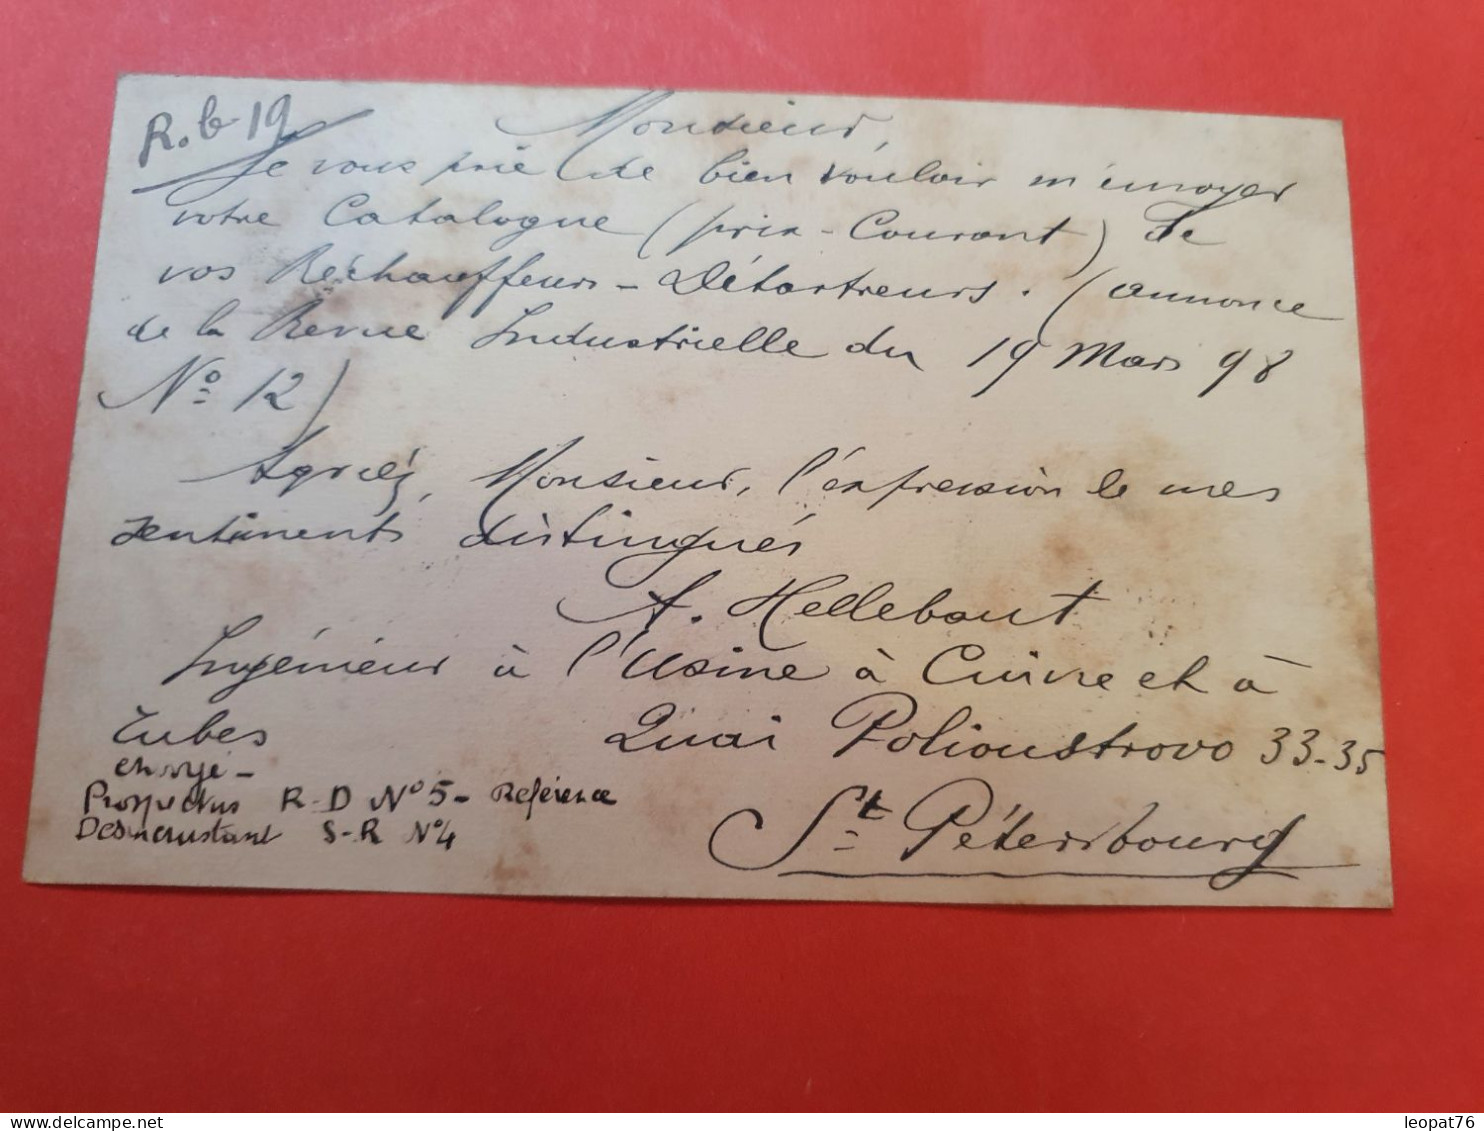 R. le 19
Monsieur,
Je vous prie de bien vouloir m'envoyer
votre Catalogue (prix-Courant) de
vos Réchauffeurs-Détartreurs. (annonce
de la Revue Industrielle du 19 Mars 98
No 12)
Agréez, Monsieur, l'expression de mes
sentiments distingués
A. Hellebaut
Ingénieur à l'Usine à Cuivre et à
Tubes Quai Polioustrovo 33-35
St Pétersbourg
envoyé -
Prospectus R-D No 5 - Référence
Desincrustant S-R No 4
leopat76
delcampe.net